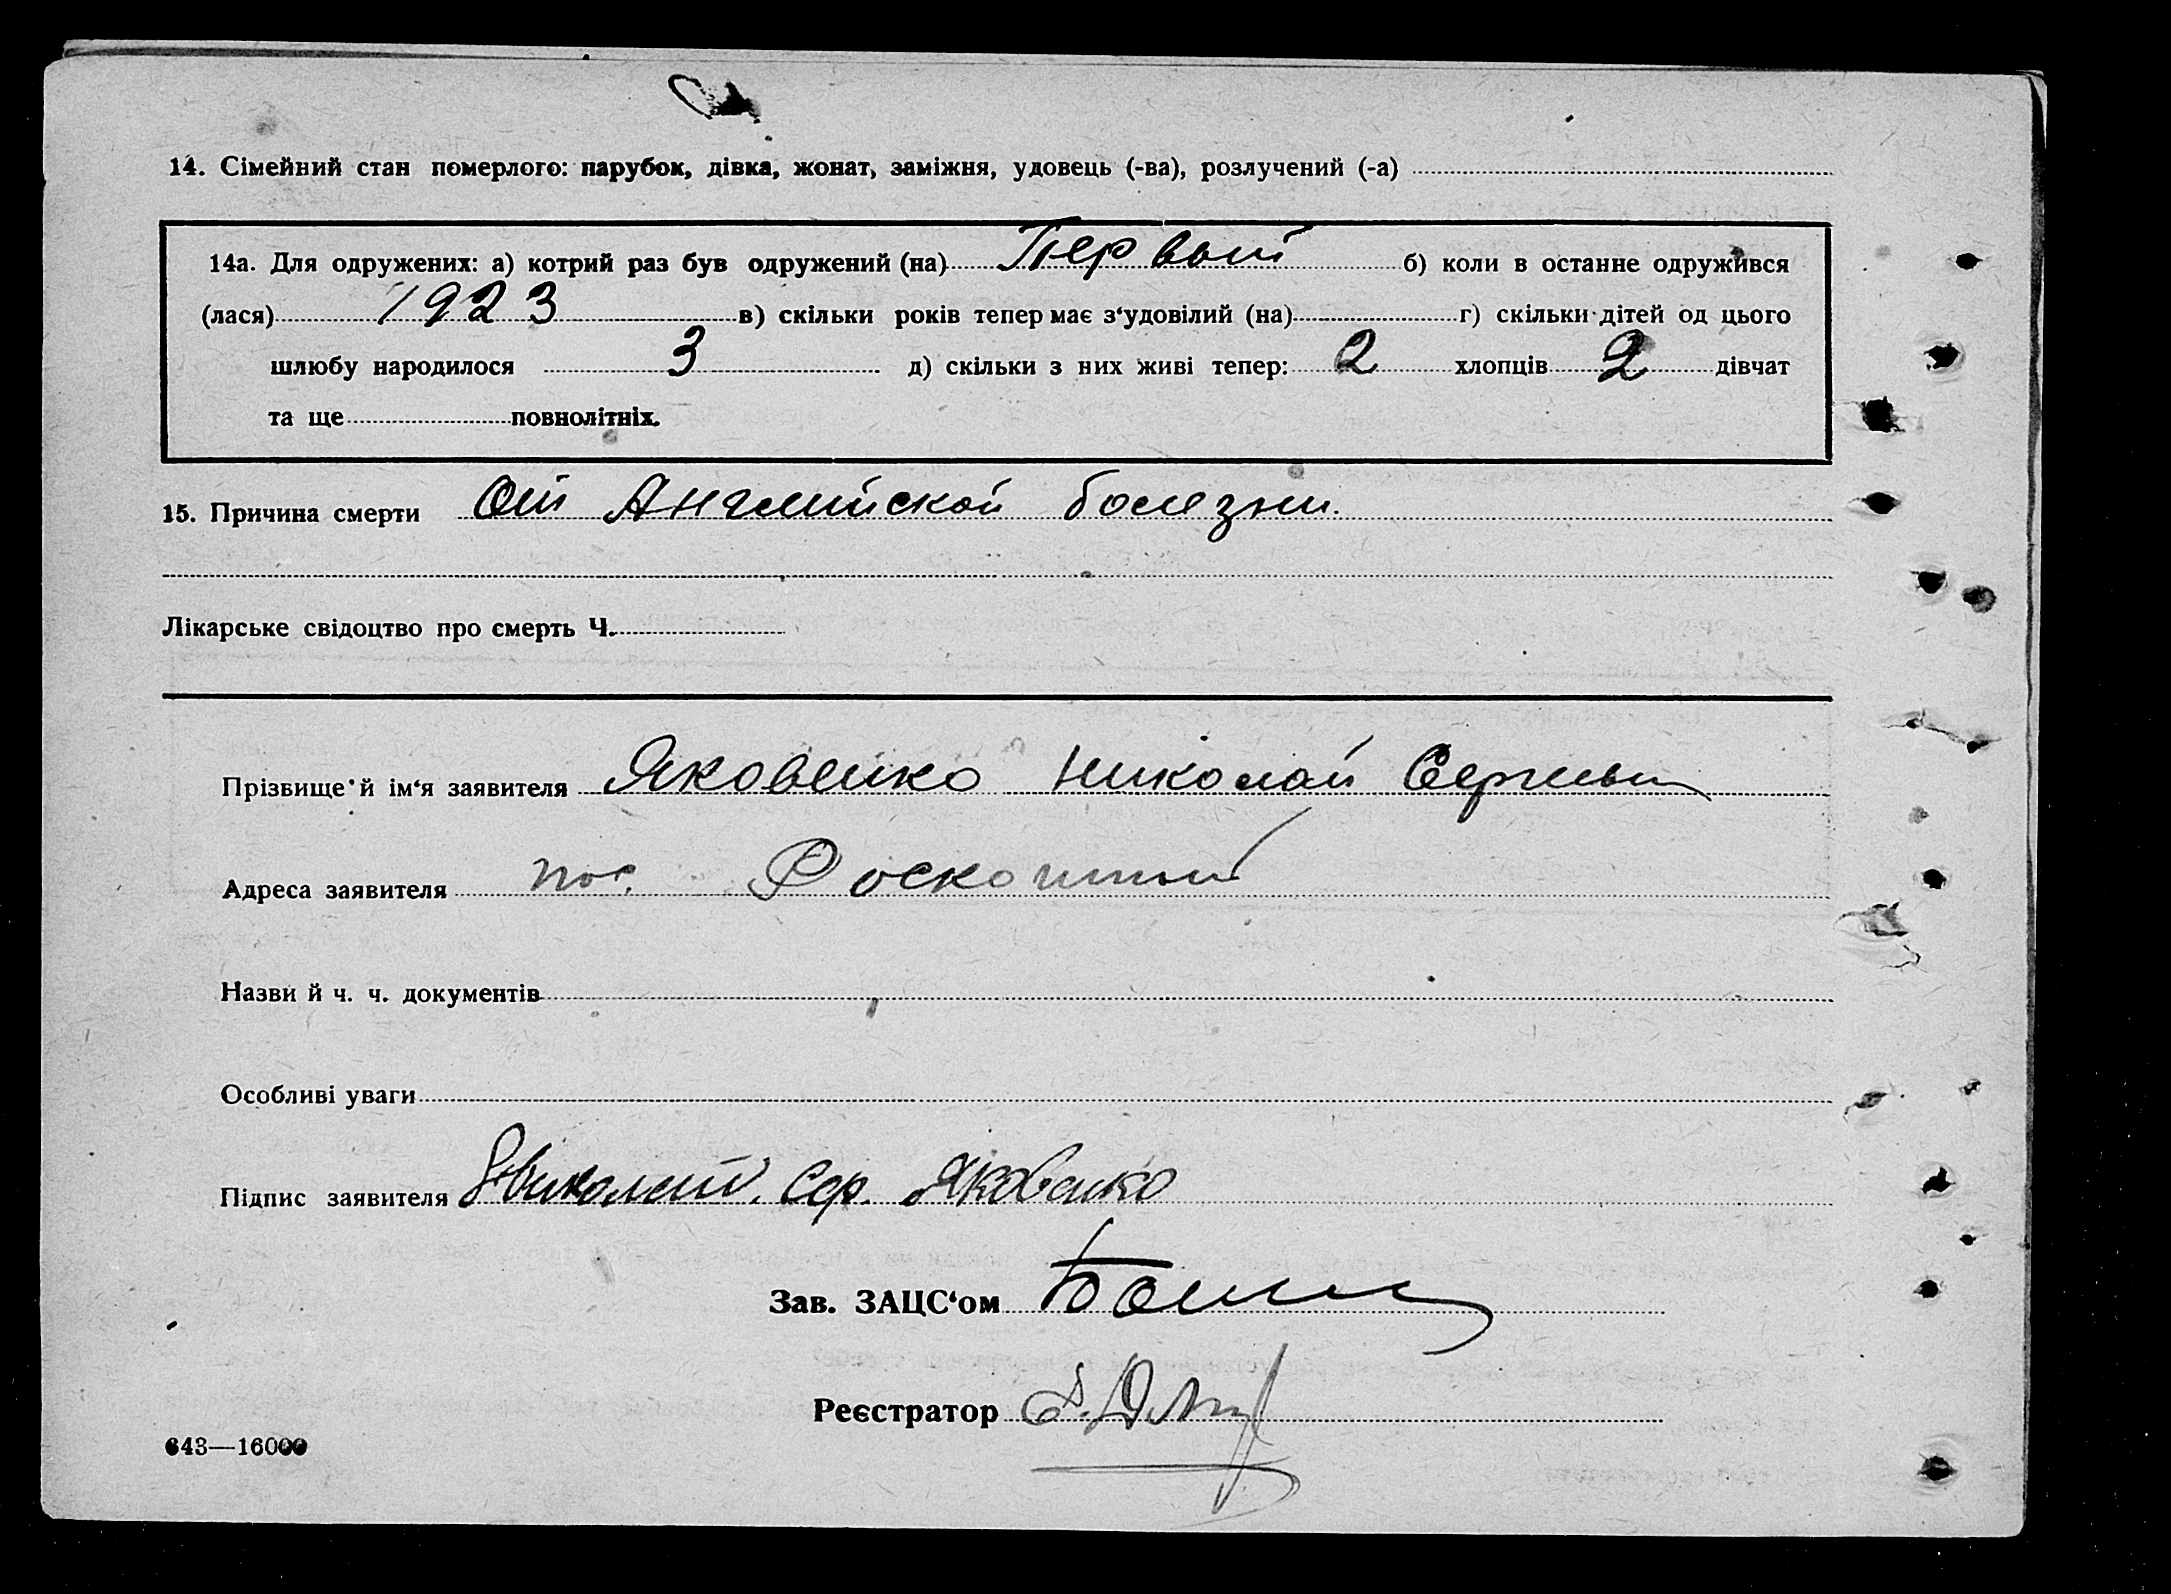 14. Сімейний стан померлого: парубок, дівка, жонат, заміжня, удовець (-ва), розлучений (-а)
14а. Для одружених: а) котрий раз був одружений (на) Первый б) коли в останне одружився
(лася) 1923 в) скільки років тепер має з‘удовілий (на) г) скільки дітей од цього
шлюбу народилося 3 д) скільки з них живі тепер: 2 хлопців 2 дівчат
та ще повнолітніх.
15. Причина смерти От Английской болезни.
Лікарське свідоцтво про смерть Ч.
Прізвище й ім‘я заявителя Яковенко Николай Сергеевич
Адреса заявителя пос. Роскошный
Назви й ч. ч. документів
Особливі уваги
Підпис заявителя Николай. Сер. Яковенко
Зав. ЗАЦС‘ом
Реєстратор
643—16000